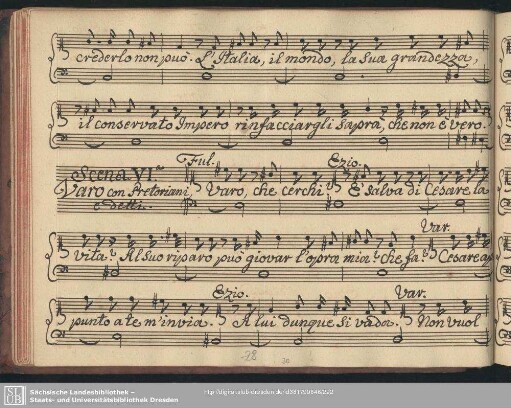 crederlo non può. L'Italia, il mondo, la sua grandezza,
il conservato Impero rinfacciargli saprà, che non è vero.
Ful. Ezio.
Scena VI.ª
Varo con Pretoriani, Varo, che cerchi? È salva di Cesare la
e detti.
Var.
vita? Al suo riparo può giovar l'opra mia? che fa? Cesare ap
Ezio. Var.
punto a te m'invia. A lui dunque si vada. Non vuol
28
SLUB
Sächsische Landesbibliothek –
Staats- und Universitätsbibliothek Dresden